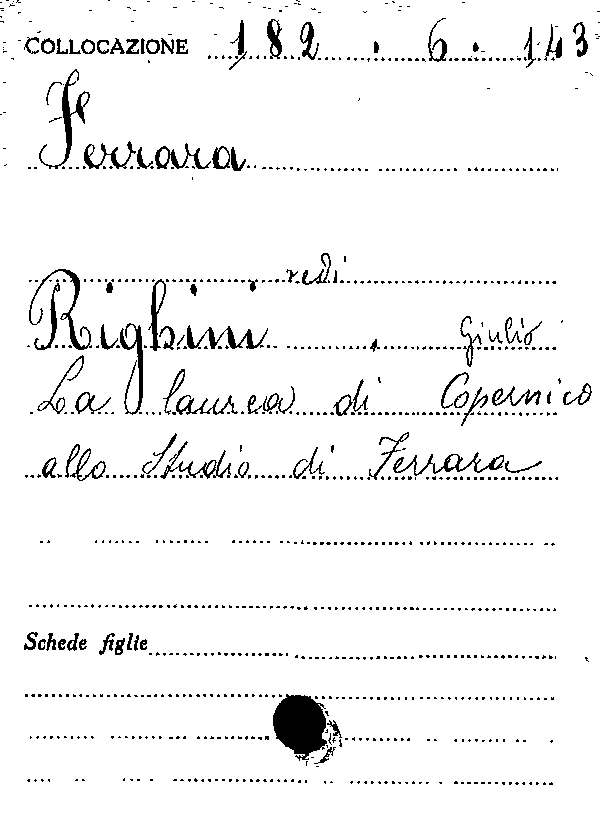 COLLOCAZIONE 182 . 6 . 143
Ferrara
vedi
Righini , Giulio
La laurea di Copernico
allo Studio di Ferrara
Schede figlie